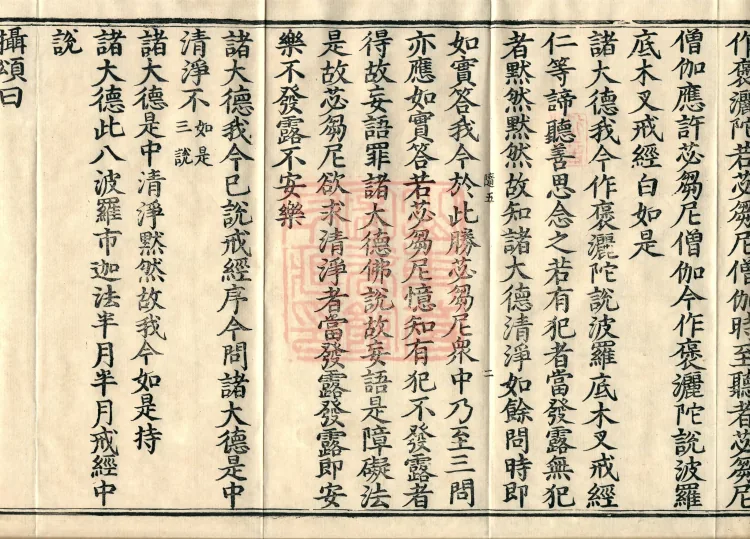 作褒灑陀若苾芻尼僧伽時至聽者苾芻尼
僧伽應許苾芻尼僧伽今作褒灑陀說波羅
底木叉戒經白如是
諸大德我今作褒灑陀說波羅底木叉戒經
仁等諦聽善思念之若有犯者當發露無犯
者默然默然故知諸大德清淨如餘問時即
隨五
二
如實答我今於此勝苾芻尼眾中乃至三問
亦應如實答若苾芻尼憶知有犯不發露者
得故妄語罪諸大德佛說故妄語是障礙法
是故苾芻尼欲求清淨者當發露發露即安
樂不發露不安樂
諸大德我今已說戒經序今問諸大德是中
清淨不如是三說
諸大德是中清淨默然故我今如是持
諸大德此八波羅市迦法半月半月戒經中
說
攝頌曰